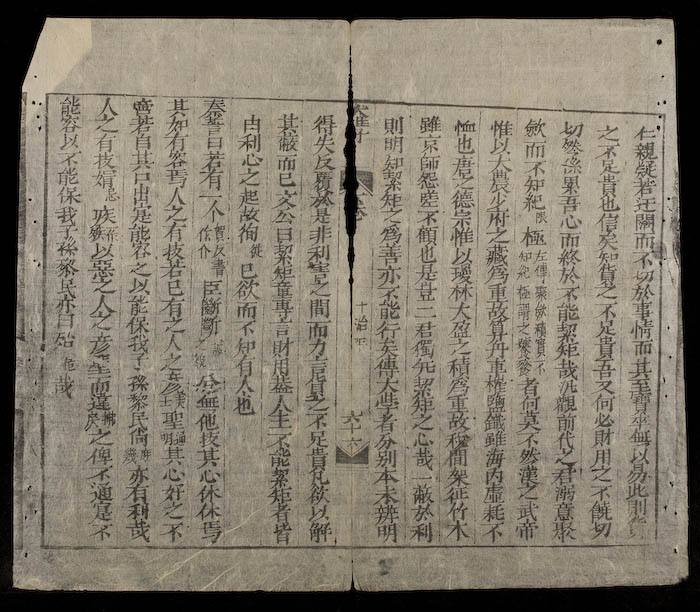 仁親疑若迂闊而不切於事情而其至寶卒無以易此則貨
之不足貴也信矣知貨之不足貴吾又何必財用之不饒切
切然係累吾心而終於不能絜矩哉況觀前代之君溺意聚
歛而不知紀限極左傳聚歛積實不知紀極謂之饕餮者何莫不然漢之武帝
惟以大農少府之藏爲重故算舟車榷鹽鐵雖海內虛耗不
恤也唐之德宗惟以瓊林大盈之積爲重故稅間架征竹木
雖京師怨嗟不顧也是豈二君獨死絜矩之心哉一蔽於利
則明知絜矩之爲善亦不能行矣傳大學者分別本末辨明
大學
十治平
六十六
得失反覆於是非利害之間而力言貨之不足貴凡欲以解
其蔽而已文公曰絜矩章專言財用葢人主不能絜矩者皆
由利心之起故徇從己欲而不知有人也
秦誓曰若有一个臣斷斷兮無他技其心休休焉
其如有容焉人之有技若己有之人之彥美士聖通明其心好之不
啻若自其口出寔能容之以能保我子孫黎民尚庶幾亦有利哉
人之有技媢忌疾以惡之人之彥聖而違拂戾之俾不通寔不
能容以不能保我子孫黎民亦曰殆危哉